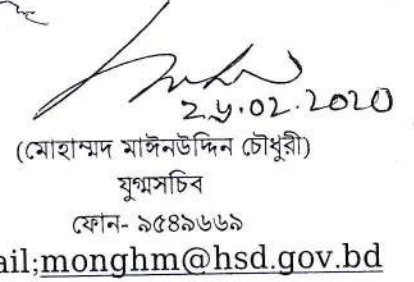 2৬.02.2020
(মোহাম্মদ মাঈনউদ্দিন চৌধুরী)
যুগ্মসচিব
ফোন- ৯৫৪৯৬৬৯
ail;monghm@hsd.gov.bd